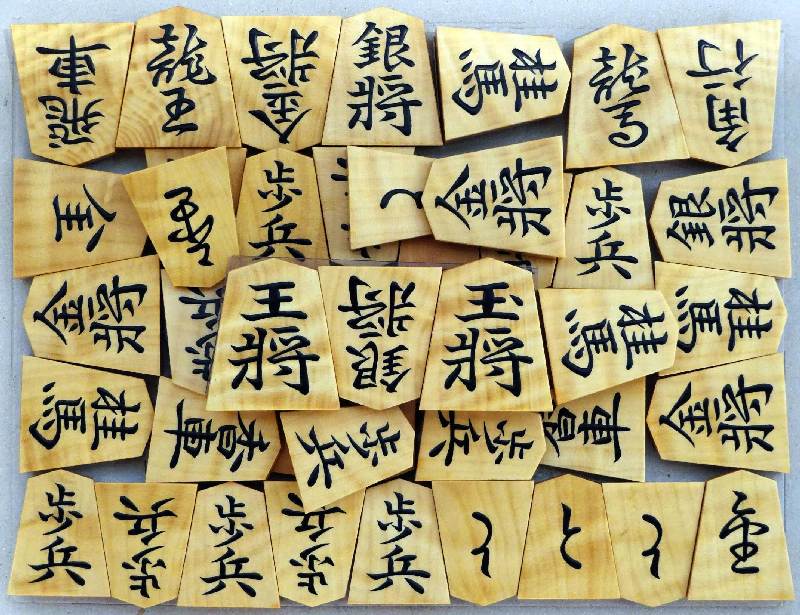 飛車
龍王
金将
銀将
桂馬
龍馬
角行
金
歩兵
金将
歩兵
銀将
金将
王将
銀将
玉将
桂馬
桂馬
桂馬
香車
歩兵
歩兵
香車
金将
歩兵
歩兵
歩兵
歩兵
歩兵
と
と
と